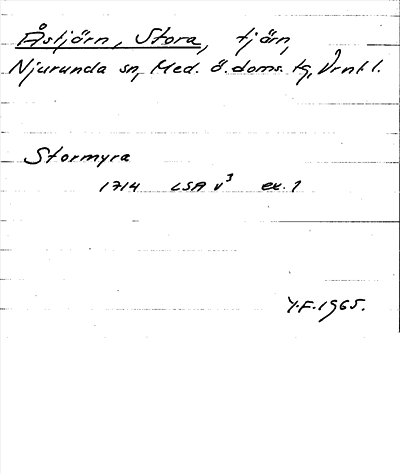 Åstjärn, Stora, tjärn,
Njurunda sn, Med. ö. doms. tg, Vrnl l.
Stormyra
1714 LSA V³ ex. 1
Y.F. 1965.